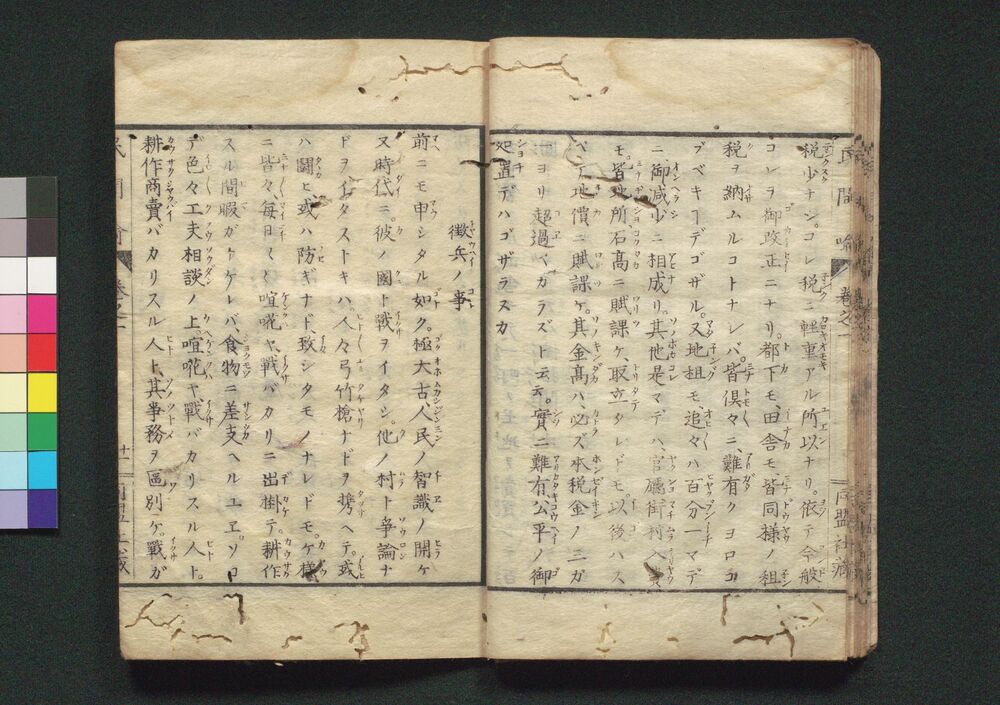 税少ナシ。コレ税ニ軽重アル所以ナリ。依テ今般
コレヲ御改正ニナリ。都下モ、田舎モ皆同様ノ租
税ヲ納ムルコトナレバ、皆倶々ニ、難有クヨロコ
ブベキヿデゴザル。又地租モ追々ハ百分一マデ
ニ御減少ニ相成リ。其他是マデハ、官廳街村入費
モ。皆地所石高ニ賦課ケ、取立タレドモ。以後ハス
ベテ地價ニ賦課ケ。其金高ハ、必ズ本税金ノ三ガ
一ヨリ超過ベカラズト云云。實ニ難有、公平ノ御
処置デハゴザラヌカ
徴兵ノ事
前ニモ申シタル如ク。極大古、人民ノ智識ノ開ケ
又時代ニ。彼ノ國ト戰ヲイタシ。他ノ村ト争論ナ
ドヲイタストキハ、人々弓竹槍ナドヲ携ヘテ。或
ハ闘ヒ、或ハ防ギナド、致シタモノナレドモ。ケ様
ニ皆々毎日々々喧嘩ヤ、戰バカリニ出掛テ。耕作
スル間暇ガナケレバ、食物ニ差支ヘルユエ。ソコ
デ色々工夫相談ノ上。喧嘩ヤ戰バカリスル人ト。
耕作商賣バカリスル人ト、其事務ヲ區別ケ。戰ガ